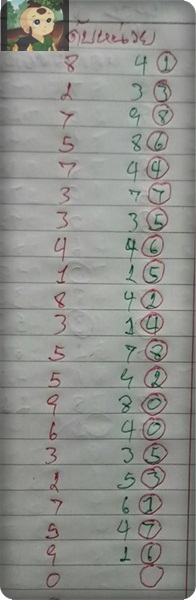 ดับหน่วย
8 4 1
2 3 3
7 9 8
5 8 6
7 4 4
3 7 7
3 3 5
4 4 6
1 2 5
8 4 2
3 1 4
5 7 8
5 4 2
9 8 0
6 4 0
3 3 5
2 5 3
7 6 1
5 4 7
9 1 6
0